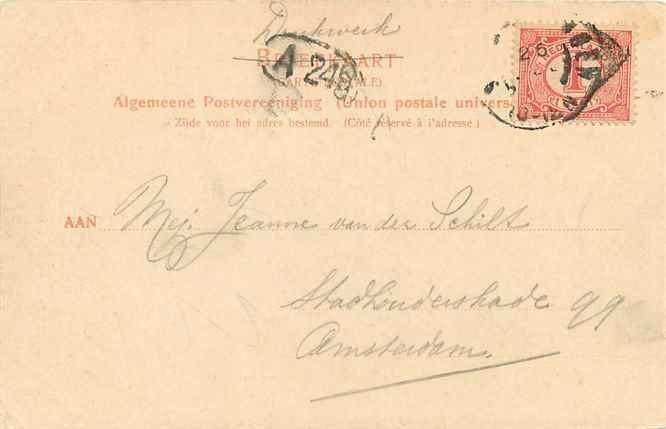 Drukwerk
BRIEFKAART
(CARTE POSTALE)
A 248
Algemeene Postvereeniging (Union postale universelle)
Zijde voor het adres bestemd. (Côté réservé à l'adresse.)
AAN Mej. Jeanne van der Schilt
Stadhouderskade 99
Amsterdam.
NED
1